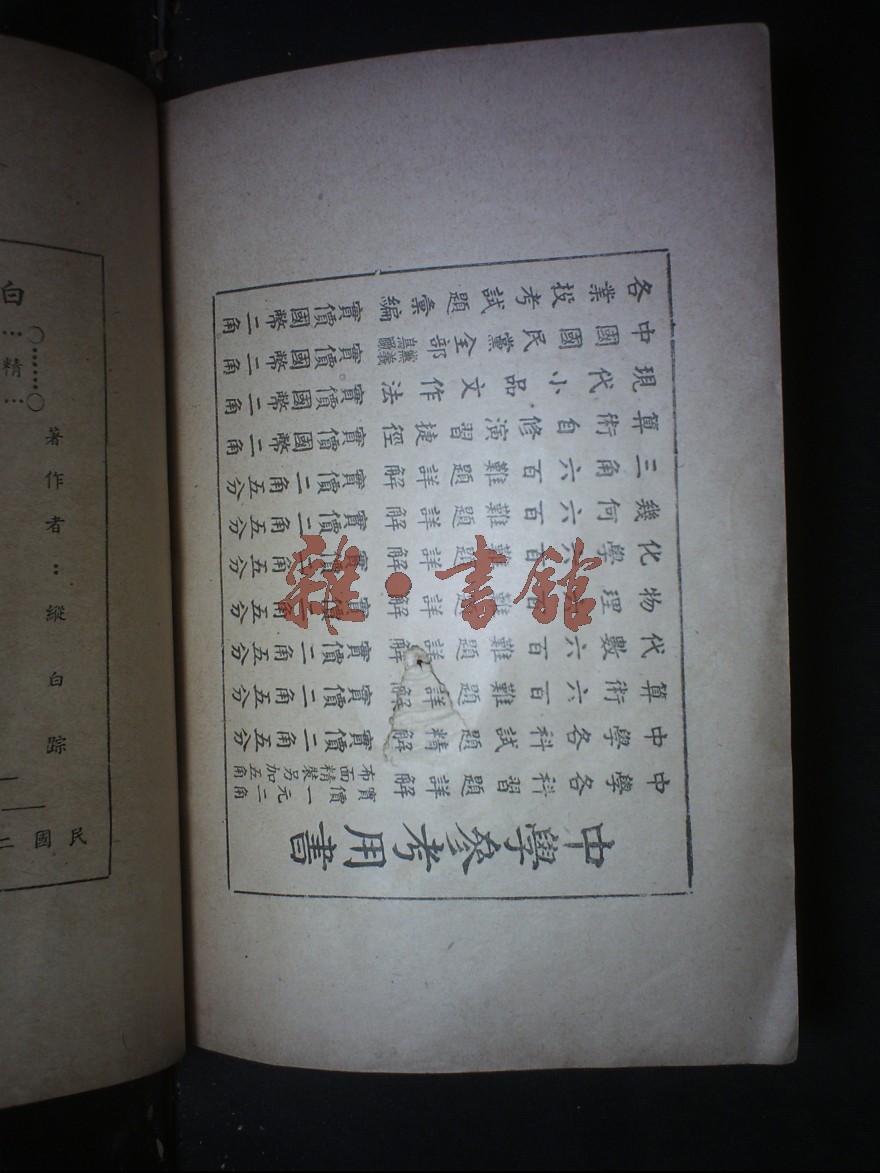 中學參考用書
中學各科習題詳解 實價一元二角 布面精裝另加五角
中學各科試題精解 實價二角五分
算術六百難題詳解 實價二角五分
代數六百難題詳解 實價二角五分
物理六百難題詳解 實價二角五分
化學六百難題詳解 實價二角五分
幾何六百難題詳解 實價二角五分
三角六百難題詳解 實價二角五分
算術自修演習捷徑 實價國幣二角
現代小品文作法 實價國幣二角
中國國民黨全部黨義鳥瞰 實價國幣二角
各業投考試題彙編 實價國幣二角
雜·書館
民國二
著作者：
精
白